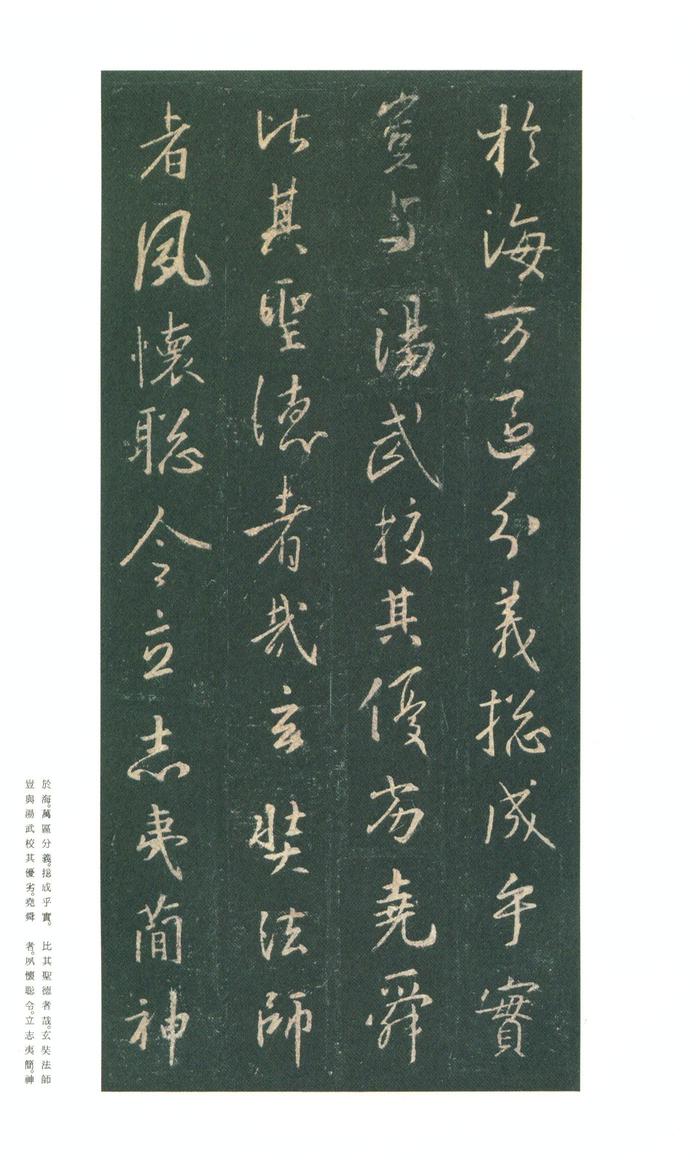 於海万區分義惣成乎實
豈与湯武挍其優劣堯舜
比其聖德者哉玄奘法師
者夙懷聡令立志夷簡神
於海。萬區分義。揔成乎實。
豈與湯武校其優劣。堯舜
比其聖德者哉。玄奘法師
者。夙懷聡令。立志夷簡。神